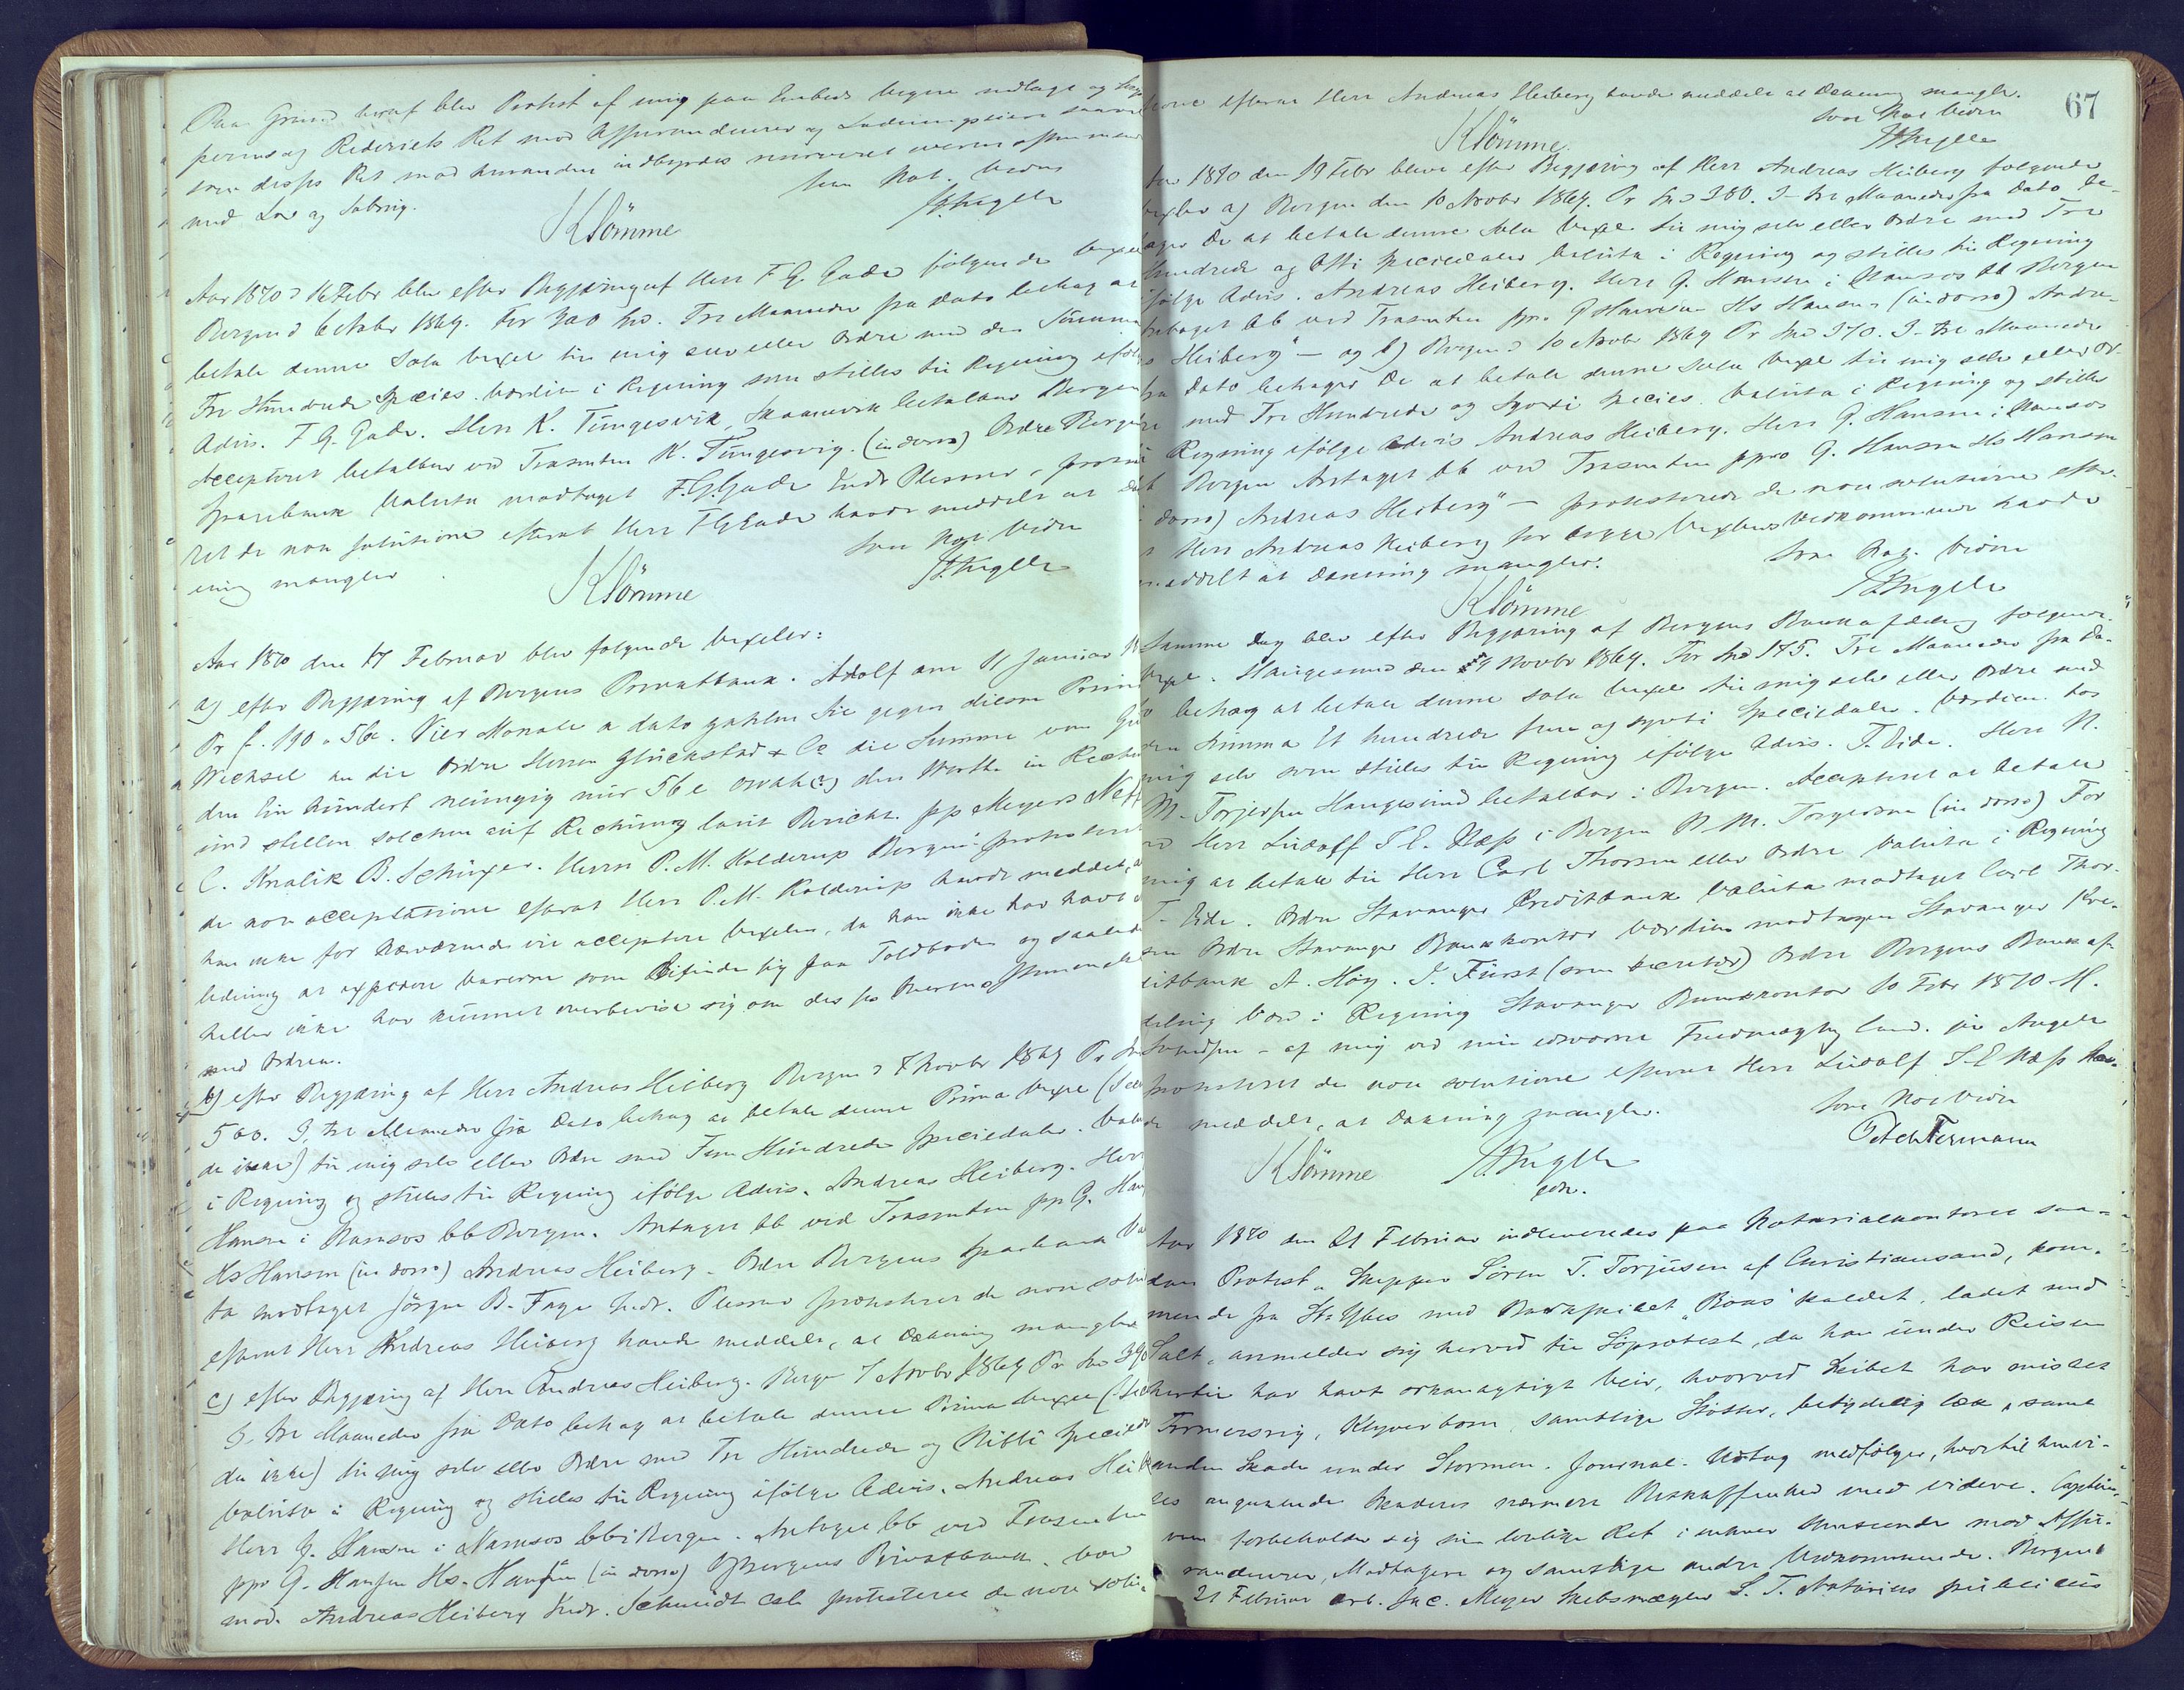 Paa Grund heraf blev Protest af mig paa Embeds Vegne nedlagt og Skip
perens og Rederiets Ret mod Assurandeurer og Ladningseiere saavel
som disses Ret mod hverandre indbyrdes reserveret overensstemmende
med Lov og Sædvane.
som Not. Vidne
KStömme
Aar 1870 d 16 Febr blev efter Begjæring af Herr F G. Gade følgende Vexel
Bergen d 6 Novbr 1869. For 300 Spd. Tre Maaneder fra Dato behag at
betale denne Sola Vexel til mig selv eller Ordre med den Summa
Tre Hundrede Species. Værdien i Regning som stilles til Regning ifølge
Advis. F. G. Gade. Herr K. Tungesvik, Skaanevik betalbar Bergen
Accepteret betalbar ved Trasenten K. Tungesvig. (in dorso) Ordre Bergens
Sparebank Valuta modtaget F. G. Gade Indr Plesner - proteste
ret de non solutione efterat Herr F G Gade havde meddelt at Dæk
ning mangler
som Not Vidne
KStömme
Aar 1870 den 17 Februar blev følgende Vexeler:
a) efter Begjæring af Bergens Privatbank. Adolf am 11 Januar 18
Pr f. 190 " 56c. Vier Monate a dato zahlen Sie gegen diesen Prima
Wechsel an die Ordre Herren Glückstad & Co die Summe von Gul
den Ein hundert neunzig nur 56 c den Werth in Rechn
und stellen solchen auf Rechnung laut Bericht. pp Meyers
C. Knalik B. Schirges. Herrn P. M. Kolderup Bergen: protesteret
de non acceptatione efterat Herr P. M. Kolderup havde meddelt, at
han ikke for nærværende vil acceptere Vexelen, da han ikke har havt An
ledning at expedere Varerne som befinde sig paa Toldboden og saaledes
heller ikke har kunnet overbevise sig om disses Overensstemmelse
med Ordren.
b) efter Begjæring af Herr Andreas Heiberg Bergen d 7 Novbr 1869 Pr Spd
500. I tre Maaneder fra Dato behag at betale denne Prima Vexel (Secun
da ikke) til mig selv eller Ordre med Fem Hundrede Speciedaler. Valuta
i Regning og stilles til Regning ifølge Advis. Andreas Heiberg. Herr
Hansen i Namsos bb Bergen. Antaget bb ved Trasenten pp G. Han
Hs Hansen (in dorso) Andreas Heiberg - Ordre Bergens Sparebank Valu
ta modtaget Jörgen B. Faye Indr. Plesner protesteret de non solu
efterat Herr Andreas Heiberg havde meddelt, at Dækning mangler
c) efter Begjæring af Herr Andreas Heiberg. Bergen 7 Novbr 1869 Pr Spd 390
I tre Maaneder fra Dato behag at betale denne Prima Vexel (Secun
da ikke) til mig selv eller Ordre med Tre Hundrede og Nitti Specied
Valuta i Regning og stilles til Regning ifølge Advis. Andreas Heib
Herr G. Hansen i Namsos bb i Bergen. Antaget bb ved Trasenten
ppr G. Hansen Hs. Hansen (in dorso) O/ Bergens Privatbank. Val
mod. Andreas Heiberg Indr. Schmidt protesteret de non solu
67
tione efterat Herr Andreas Heiberg havde meddelt at Dækning mangler.
som Not Vidne
KStömme
Aar 1870 den 19 Febr bleve efter Begjæring af Herr Andreas Heiberg følgende
Vexler a) Bergen den 10 Novbr 1869. Pr Spd 380. I tre Maaneder fra Dato be-
hager De at betale denne Sola Vexel til mig selv eller Ordre med Tre
hundrede og Otti Speciedaler Valuta i Regning og stilles til Regning
ifølge Advis. Andreas Heiberg. Herr G. Hansen i Namsos bb Bergen
Antaget bb ved Trasenten ppr. G Hansen Hs Hansen (in dorso) Andre-
as Heiberg" - og b) Bergen d 10 Novbr 1869 Pr Spd 370. I tre Maaneder
fra Dato behager De at betale denne Sola Vexel til mig selv eller Or-
dre med Tre Hundrede og Sytti Species. Valuta i Regning og stilles
til Regning ifølge Advis Andreas Heiberg. Herr G. Hansen i Namsos
bb Bergen Antaget bb ved Trasenten ppro G. Hansen Hs Hansen
(in dorso) Andreas Heiberg" - protesterede de non solutione efter-
at Herr Andreas Heiberg for begge Vexlers Vedkommende havde
meddelt at Dækning mangler.
som Not. Vidne
KStömme
Samme Dag blev efter Begjæring af Bergens Bankafdeling følgende
Vexel. Haugesund den 17 Novbr 1869. For Spd 175. Tre Maaneder fra Da-
to behag at betale denne sola Vexel til mig selv eller Ordre med
den Summa Et hundrede fem og sytti Speciedaler. Værdien hos
mig selv som stilles til Regning ifølge Advis. T. Eide. Herr N.
M. Torjersen Haugesund betalbar i Bergen. Accepteret at betale
ved Herr Ludolf I. E. Næss i Bergen N. M. Torgersen (in dorso) For
mig at betale til Herr Carl Thorsen eller Ordre Valuta i Regning
T. Eide. Ordre Stavanger Creditbank Valuta modtaget Carl Thor-
sen Ordre Stavanger Bankkontor Værdien modtagen Stavanger Kre-
ditbank A. Höy. I. Fürst (som Secretær) Ordre Bergens Bankaf-
deling Værd i Regning Stavanger Bankkontor 10 Febr 1870 - H.
Svendsen - af mig ved min edsvorne Fuldmægtig Cand. jur Angell
protesteret de non solutione efterat Herr Ludolf I. E Næss hav-
de meddelt, at Dækning mangler.
som Not Vidne
KStömme
Aar 1870 den 21 Februar indleveredes paa Notarialkontoret saa-
dan Protest " Skipper Sören T. Torjusen af Christiansand, kom-
mende fra St Ybes med Barkskibet "Boas" kaldet, ladet med
Salt, anmelder sig herved til Söprotest, da han under Reisen
hertil har havt orkanagtigt Veir, hvorved Skibet har mistet
Formersrig, Klyverbom, samtlige Støtter, betydelig læk, samt
anden Skade under Stormen. Journal-Udtog medfølger, hvortil henvi-
ses angaaende Skadens nærmere Beskaffenhed med videre. Captei-
nen forbeholder sig sin lovlige Ret i enhver Henseende mod Assu-
randeurer, Modtagere og samtlige andre Vedkommende. Bergen
21 Februar Jac. Meyer Skibsmægler S. T. Notarius publicus